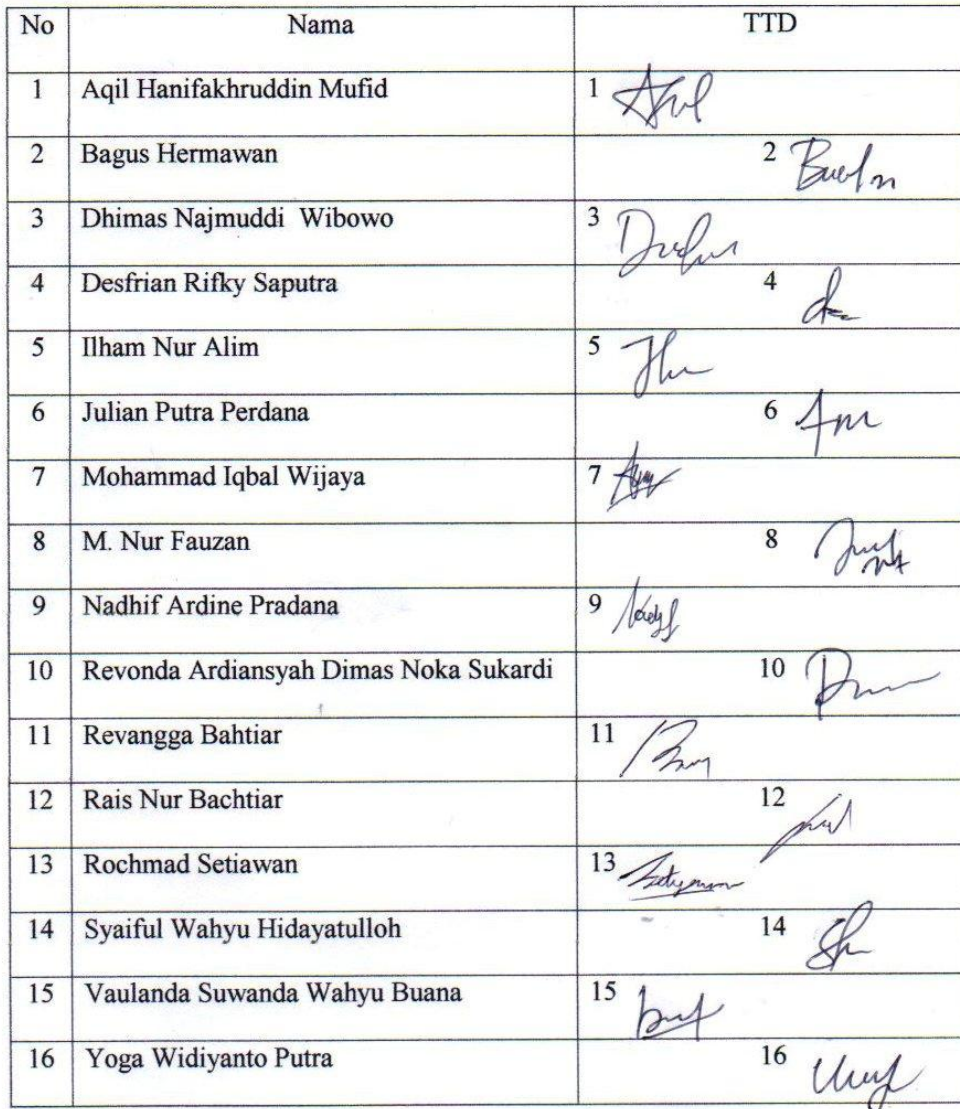 No Nama TTD
1 Aqil Hanifakhruddin Mufid 1
2 Bagus Hermawan 2
3 Dhimas Najmuddi Wibowo 3
4 Desfrian Rifky Saputra 4
5 Ilham Nur Alim 5
6 Julian Putra Perdana 6
7 Mohammad Iqbal Wijaya 7
8 M. Nur Fauzan 8
9 Nadhif Ardine Pradana 9
10 Revonda Ardiansyah Dimas Noka Sukardi 10
11 Revangga Bahtiar 11
12 Rais Nur Bachtiar 12
13 Rochmad Setiawan 13
14 Syaiful Wahyu Hidayatulloh 14
15 Vaulanda Suwanda Wahyu Buana 15
16 Yoga Widiyanto Putra 16